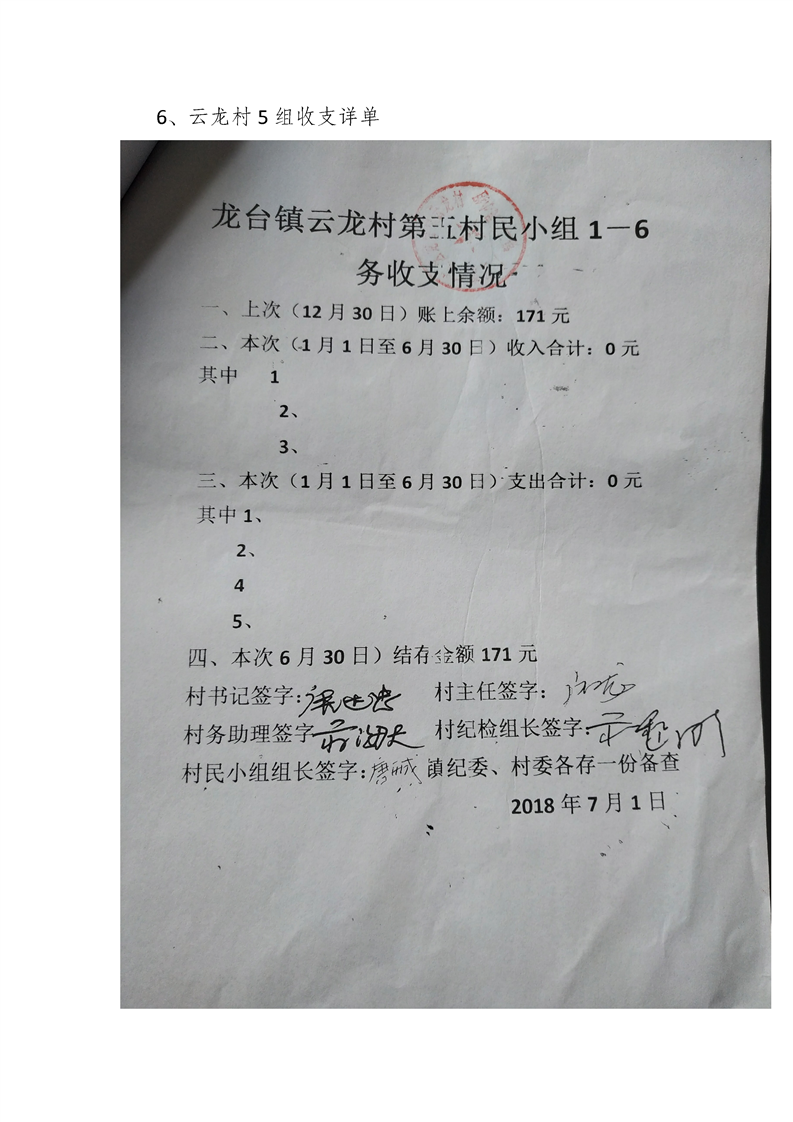 6、云龙村 5 组收支详单
龙台镇云龙村第五村民小组 1－6
务收支情况
一、上次（12 月 30 日）账上余额：171 元
二、本次（1 月 1 日至 6 月 30 日）收入合计：0 元
其中 1
2、
3、
三、本次（1 月 1 日至 6 月 30 日）支出合计：0 元
其中 1、
2、
4
5、
四、本次 6 月 30 日）结存金额 171 元
村书记签字： 村主任签字：
村务助理签字 村纪检组长签字：
村民小组组长签字： 镇纪委、村委各存一份备查
2018 年 7 月 1 日